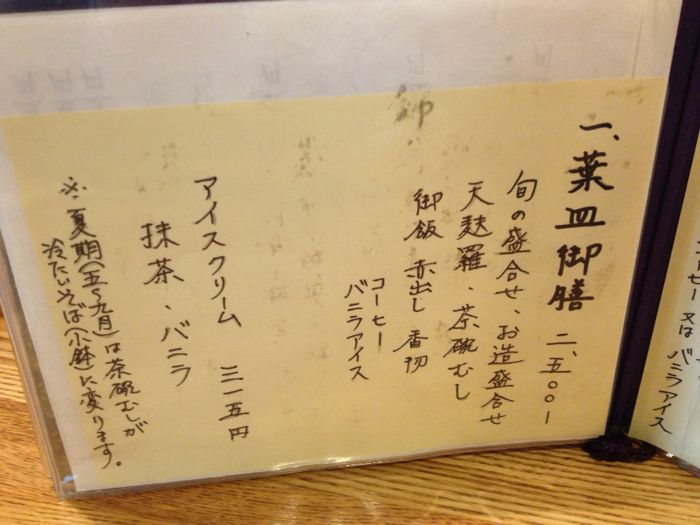 一、葉皿御膳 二、五〇〇ー
旬の盛合せ、お造盛合せ
天麩羅、茶碗むし
御飯 赤出し 香物
コーヒー
バニラアイス
アイスクリーム 三一五円
抹茶、バニラ
※夏期(五〜九月)は茶碗むしが
冷たいそば(小鉢)に変ります。
コーヒー 又は バニラアイス